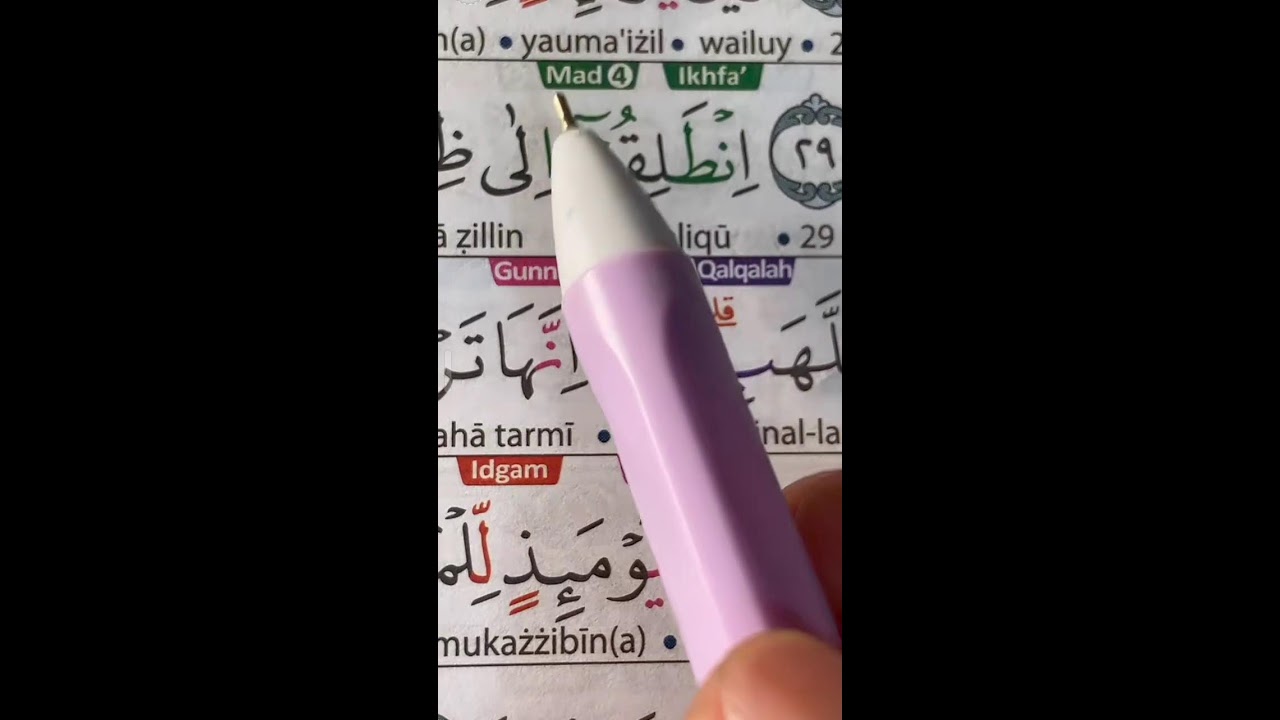 n(a) • yauma'iżil • wailuy • 2
Mad 4 Ikhfa'
٢٩ اِنْطَلِقُوْٓا اِلٰى
ā ẓillin liqū • 29
Gunn Qalqalah
اِنَّهَا
ahā tarmī • inal-la
Idgam
يَّوْمَىِٕذٍ
mukażżibīn(a) •